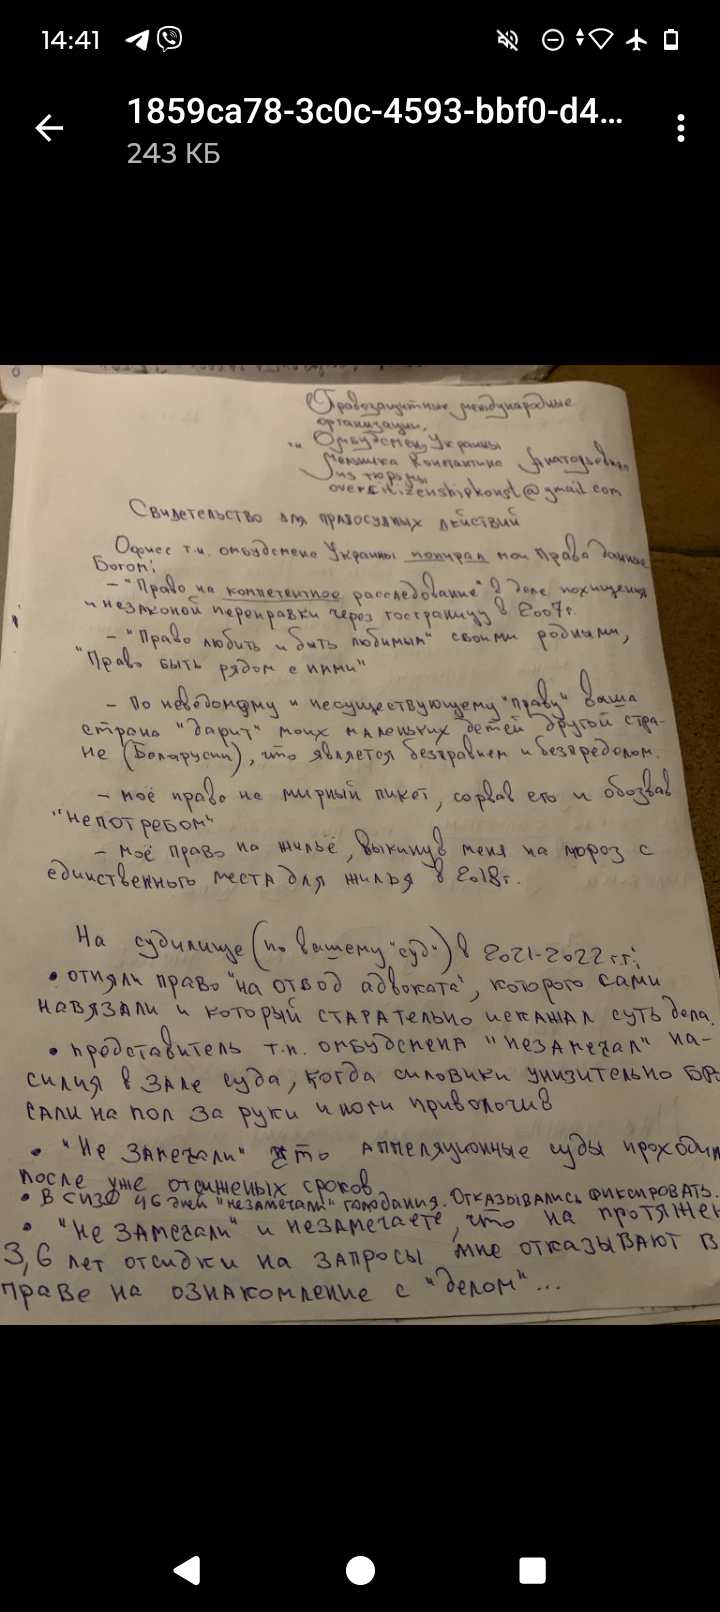 14:41
1859ca78-3c0c-4593-bbf0-d4...
243 КБ
Правозащитные международные
организации,
т.н. Омбудсмен Украины
Мельника Константина Анатольевича
из тюрьмы
overcitizenshipkonst@gmail.com
Свидетельство для правосудных действий
Офисс т.н. омбудсмена Украины попирал мои Права данные
Богом:
- "Право на компетентное расследование" в деле похищения
и незаконой переправки через госграницу в 2007г.
- "Право любить и быть любимым" своими родными,
"Право быть рядом с ними"
- По неведомому и несуществующему "праву" ваша
страна "дарит" моих маленьких детей другой стра-
не (Беларусии), что является безправием и безпределом.
- моё право на мирный пикет, сорвав его и обозвав
"непотребом"
- моё право на жильё, выкинув меня на мороз с
единственного места для жилья в 2018г.
На судилище (по вашему "суд") в 2021-2022 г.г:
• отняли право "на отвод адвоката", которого сами
навязали и который старательно искажал суть дела.
• представитель т.н. омбудсмена "незамечал" на-
силия в зале суда, когда силовики унизительно бро
сали на пол за руки и ноги приволочив
• "Не замечали" что аппеляционные суды проходил
после уже отсиженых сроков
• В СИЗО 46 дней "незамечали" голодания. Отказывались фиксировать.
• "Не замечали" и незамечаете, что на протяжен
3,6 лет отсидки на запросы мне отказывают в
праве на ознакомление с "делом"...